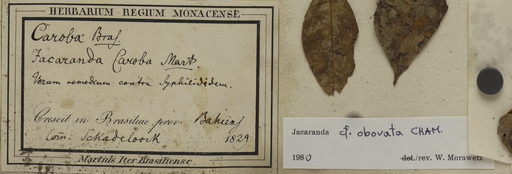 HERBARIUM REGIUM MONACENSE
Caroba Bras.
Jacaranda Caroba Mart.
Verum remedium contra Syphilidem.
Crescit in Brasiliae prov. Bahiens
Com. 1829
Martii Iter Brasiliense.
Jacaranda cf. obovata CHAM.
1980 det./rev. W. Morawetz